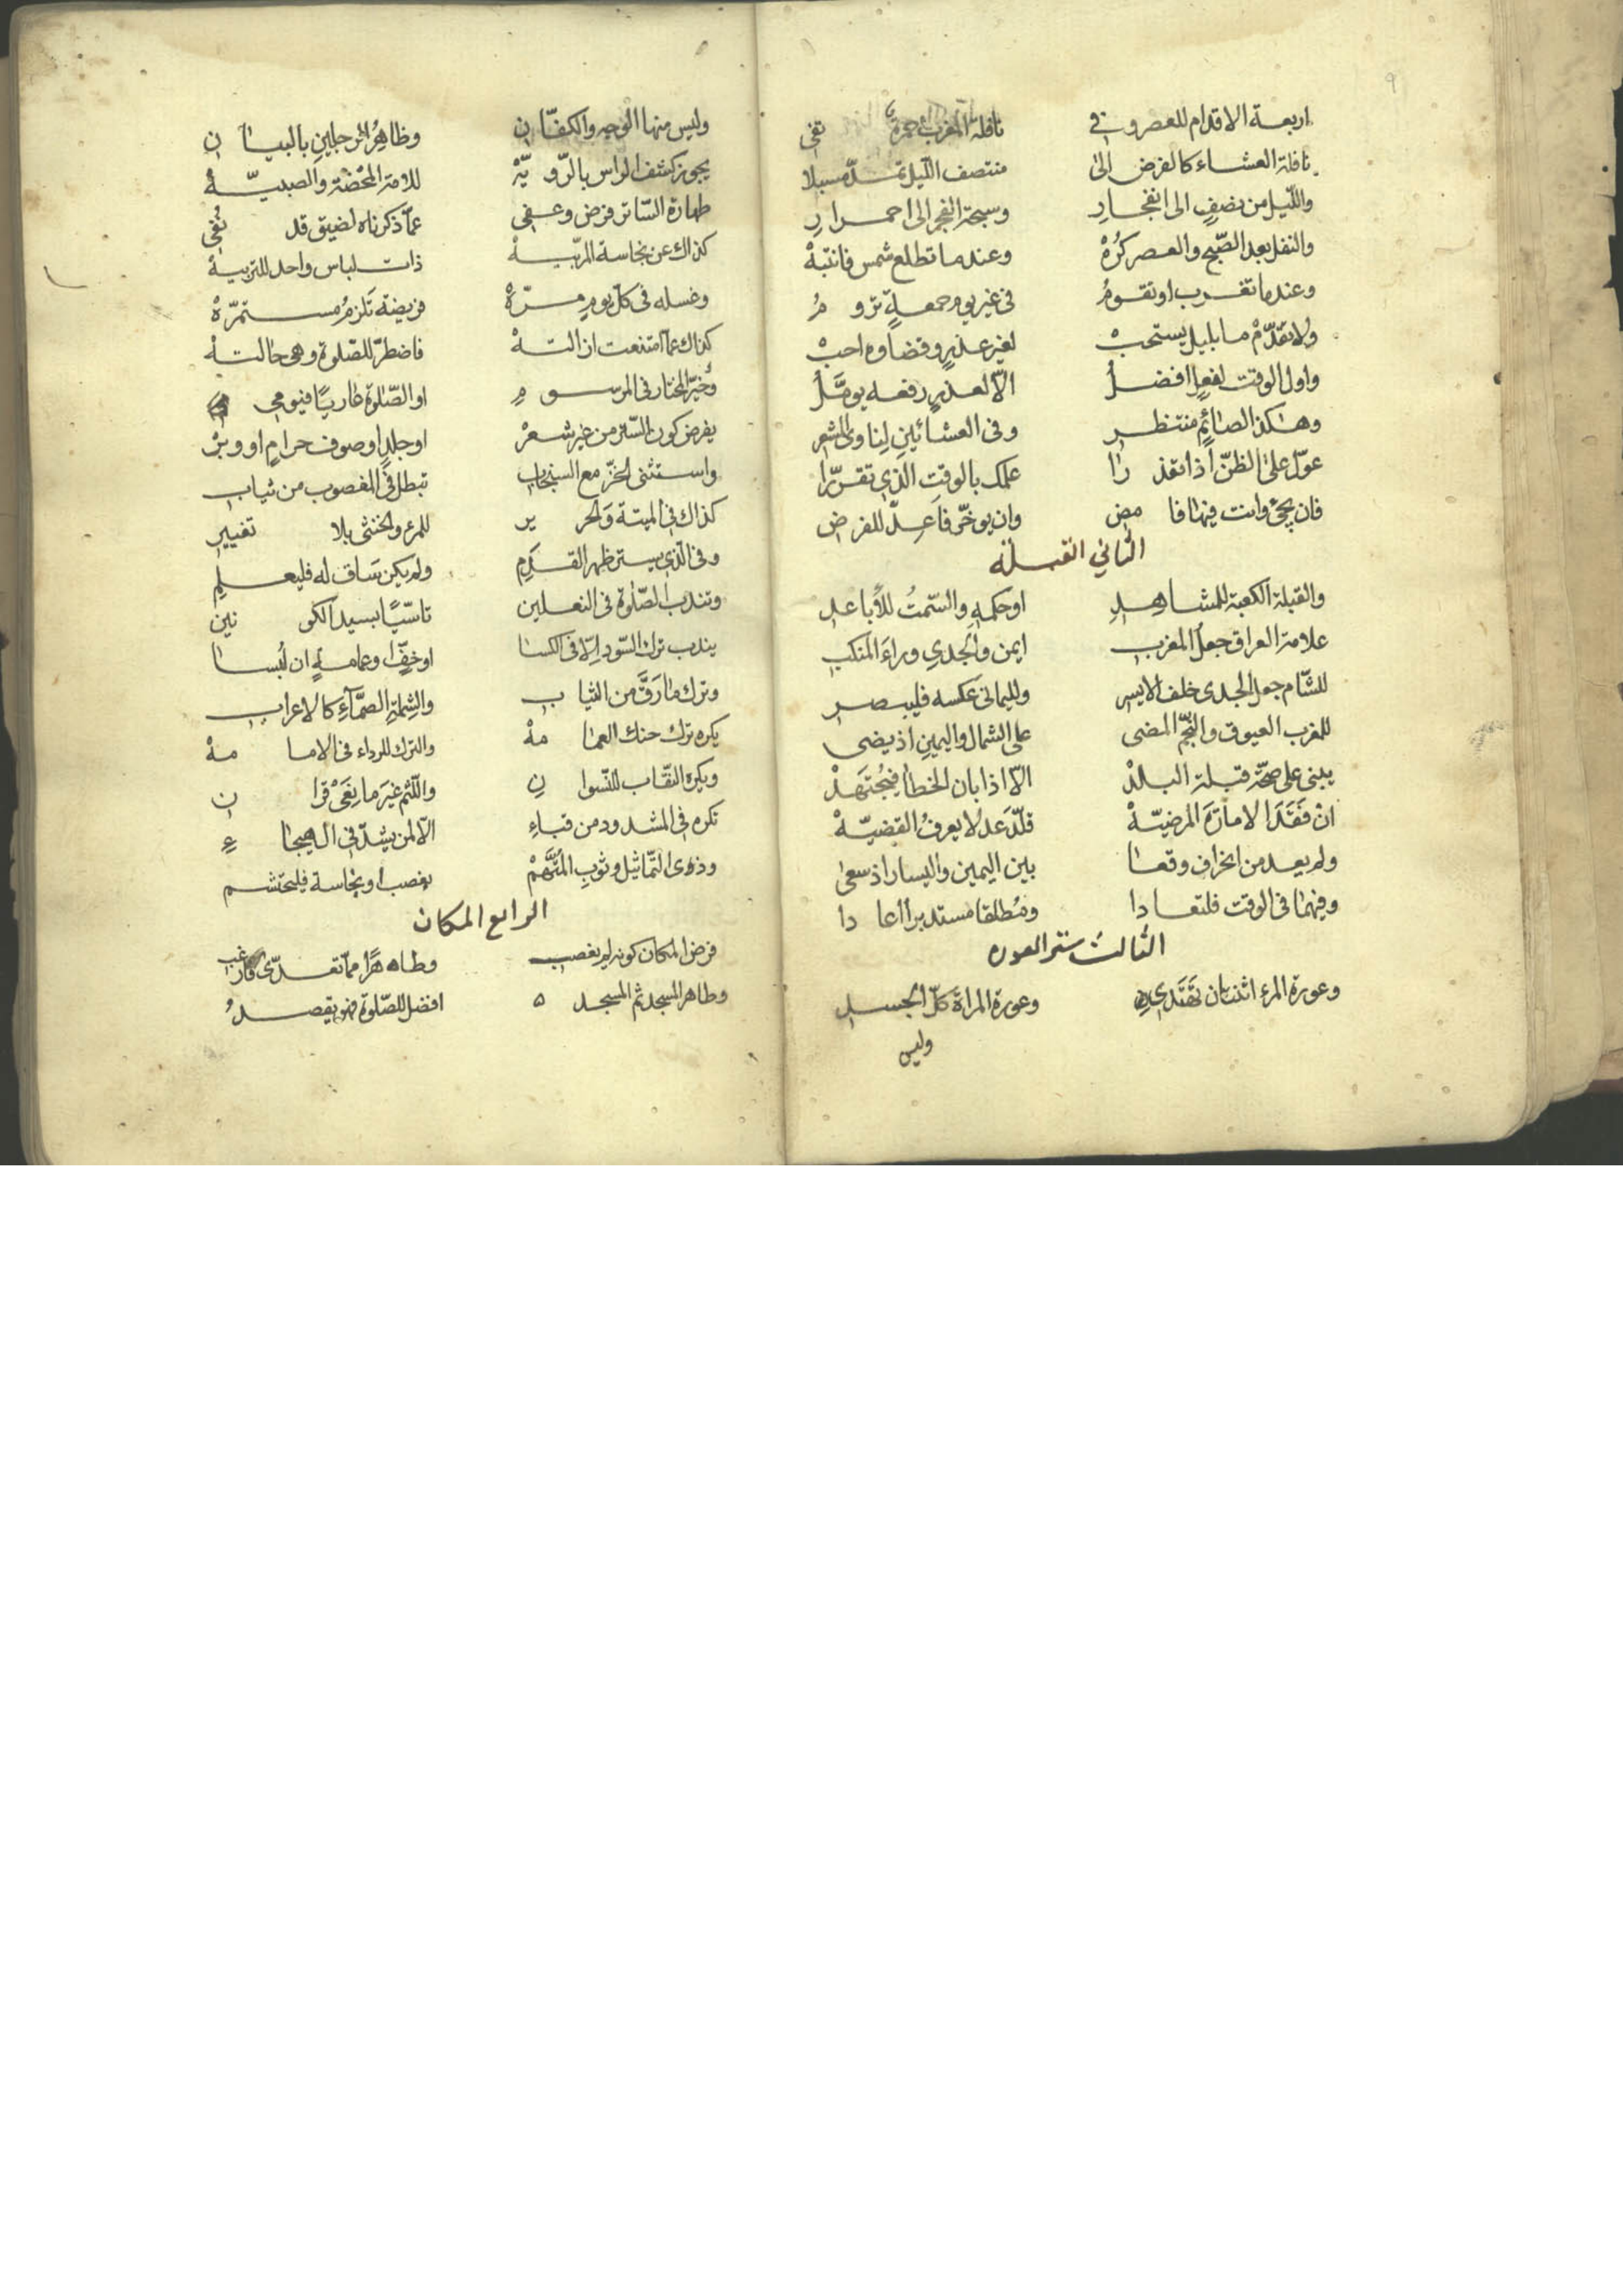 اربعة الاقدام للعصر وفي نافلة المغرب حمرة تفي
نافلة العشاء كالفرض الى منتصف الليل تمد مسبلا
والليل من نصف الى انفجار وسبحة الفجر الى احمرار
والنفل بعد الصبح والعصر كره وعند ما تطلع شمس فانتبه
وعند ما تغرب او تقوم في غير يوم جمعة تروم
ولا تقدم ما بليل يستحب لغير عذر وقضاؤه احب
واول الوقت لفعل افضل الا لعذر رفعه يؤمل
وهكذا الصائم منتظر وفي العشائين لناوى المشعر
عول على الظن اذا تعذرا علمك بالوقت الذي تقررا
فان يجئ وانت فيها فامض وان يؤخر فاعد للفرض
الثاني القبلة
والقبلة الكعبة للمشاهد او حكمه والسمت للأباعد
علامة العراق جعل المغرب ايمن والجدي وراء المنكب
للشام جعل الجدى خلف الايسر ولليماني عكسه فليبصر
للمغرب العيوق والنجم المضى على الشمال واليمين اذ يضى
يبنى على صحة قبلة البلد الا اذا بان الخطا فيجتهد
ان فقد الامارة المرضية قلد عدلا يعرف القضية
ولم يعد من انحراف وقعا بين اليمين واليسار اذ سعى
وفيهما في الوقت فلتعادا ومطلقا مستدبرا اعادا
الثالث ستر العورة
وعورة المرء اثنتان تهتدي وعورة المراة كل الجسد
وليس
وليس منها الوجه والكفان وظاهر الرجلين بالبيان
يجوز كشف الراس بالروية للامة المحضة والصبية
طهارة الساتر فرض وعفى عما ذكرناه لضيق قد نفي
كذاك عن نجاسة المربية ذات لباس واحد للتربية
وغسله في كل يوم مرة فريضة تلزم مستمرة
كذاك عما امتنعت ازالته فاضطر للصلوة وهي حالته
وخير المختار في المرسوم او الصلوة عاريا فيومى
يفرض كون الستر من غير شعر او جلد او صوف حرام او وبر
واستثنى الخز مع السنجاب تبطل في المغصوب من ثياب
كذاك في الميتة والحرير للمرء والخنثى بلا تغيير
وفي الذي يستر ظهر القدم ولم يكن ساق له فليعلم
وتندب الصلوة في النعلين تاسيا بسيد الكونين
يندب ترك السود الا في الكسا او خف او عمامة ان لبسا
وترك ما رق من الثياب والشملة الصماء كالاعراب
يكره ترك حنك العمامة والترك للرداء في الامامة
ويكره النقاب للنسوان واللثم غير مانعى قران
تكره في المشدود من قباء الا لمن يشد في الهيجاء
وذوى التماثيل وثوب المتهم بغصب او نجاسة فليحتشم
الرابع المكان
فرض المكان كونه لم يغصب وطاهرا مما تعدى فارغب
وطاهر المسجد ثم المسجد افضل للصلوة فهو يقصد